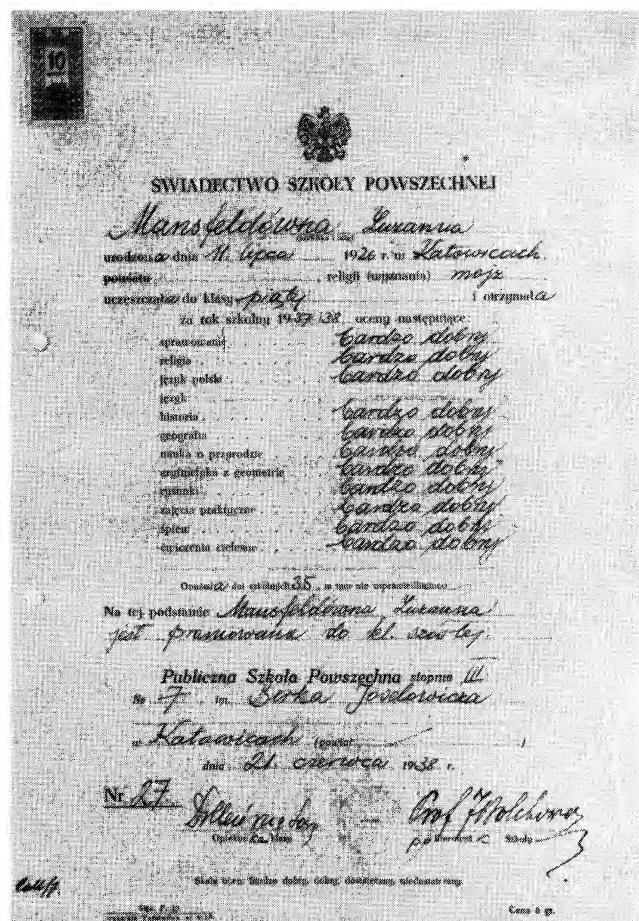 10
ŚWIADECTWO SZKOŁY POWSZECHNEJ
Mansfeldówna Zuzanna
urodzona dnia 11. lipca 1926 r. w Katowicach
powiatu , religii (wyznania) mojż
uczęszczała do klasy piątej i otrzymała
za rok szkolny 1937/38 oceny następujące:
sprawowanie bardzo dobry
religia bardzo dobry
język polski bardzo dobry
język
historia bardzo dobry
geografia bardzo dobry
nauka o przyrodzie bardzo dobry
arytmetyka z geometrią bardzo dobry
rysunki bardzo dobry
zajęcia praktyczne bardzo dobry
śpiew bardzo dobry
ćwiczenia cielesne bardzo dobry
Opuściła dni szkolnych 35, w tym nie usprawiedliwiono
Na tej podstawie Mansfeldówna Zuzanna
jest promowana do kl. szóstej
Publiczna Szkoła Powszechna stopnia III
Nr 7 im. Berka Joselowicza
w Katowicach (powiat )
dnia 21 czerwca 1938 r.
Nr 27
Opiekun klasy Kierownik Szkoły
Skala ocen: bardzo dobry, dobry, dostateczny, niedostateczny.
Cena 6 gr.